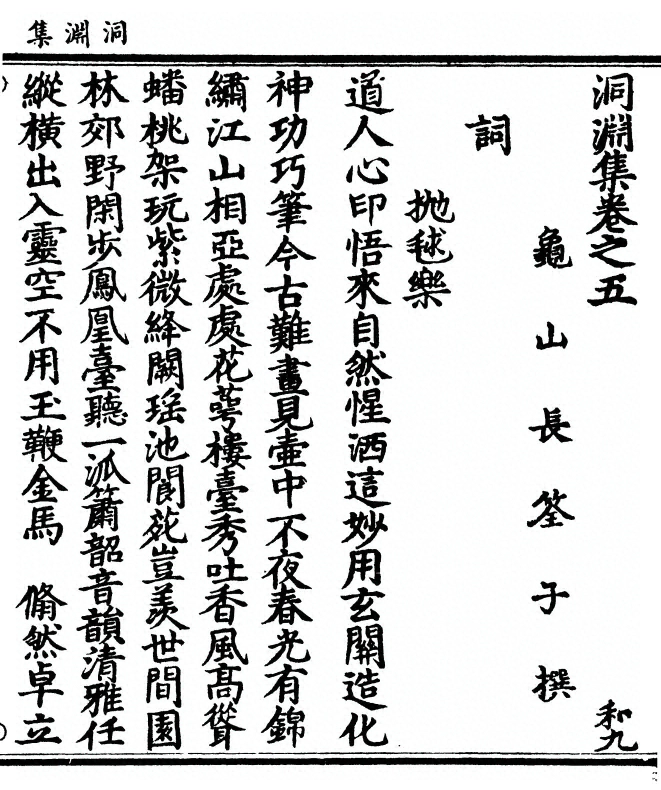 洞淵集
洞淵集卷之五
和九
龜山長筌子撰
詞
拋毬樂
道人心印悟來自然惺洒這妙用玄關造化
神功巧筆今古難畫見壷中不夜春光有錦
繡江山相亞處處花萼樓臺秀吐香風高聳
蟠桃架玩紫微絳闕瑶池閬苑豈羨世間園
林郊野閑步鳳凰臺聽一派簫韶音韻清雅任
縱橫出入靈空不用玉鞭金馬　翛然卓立